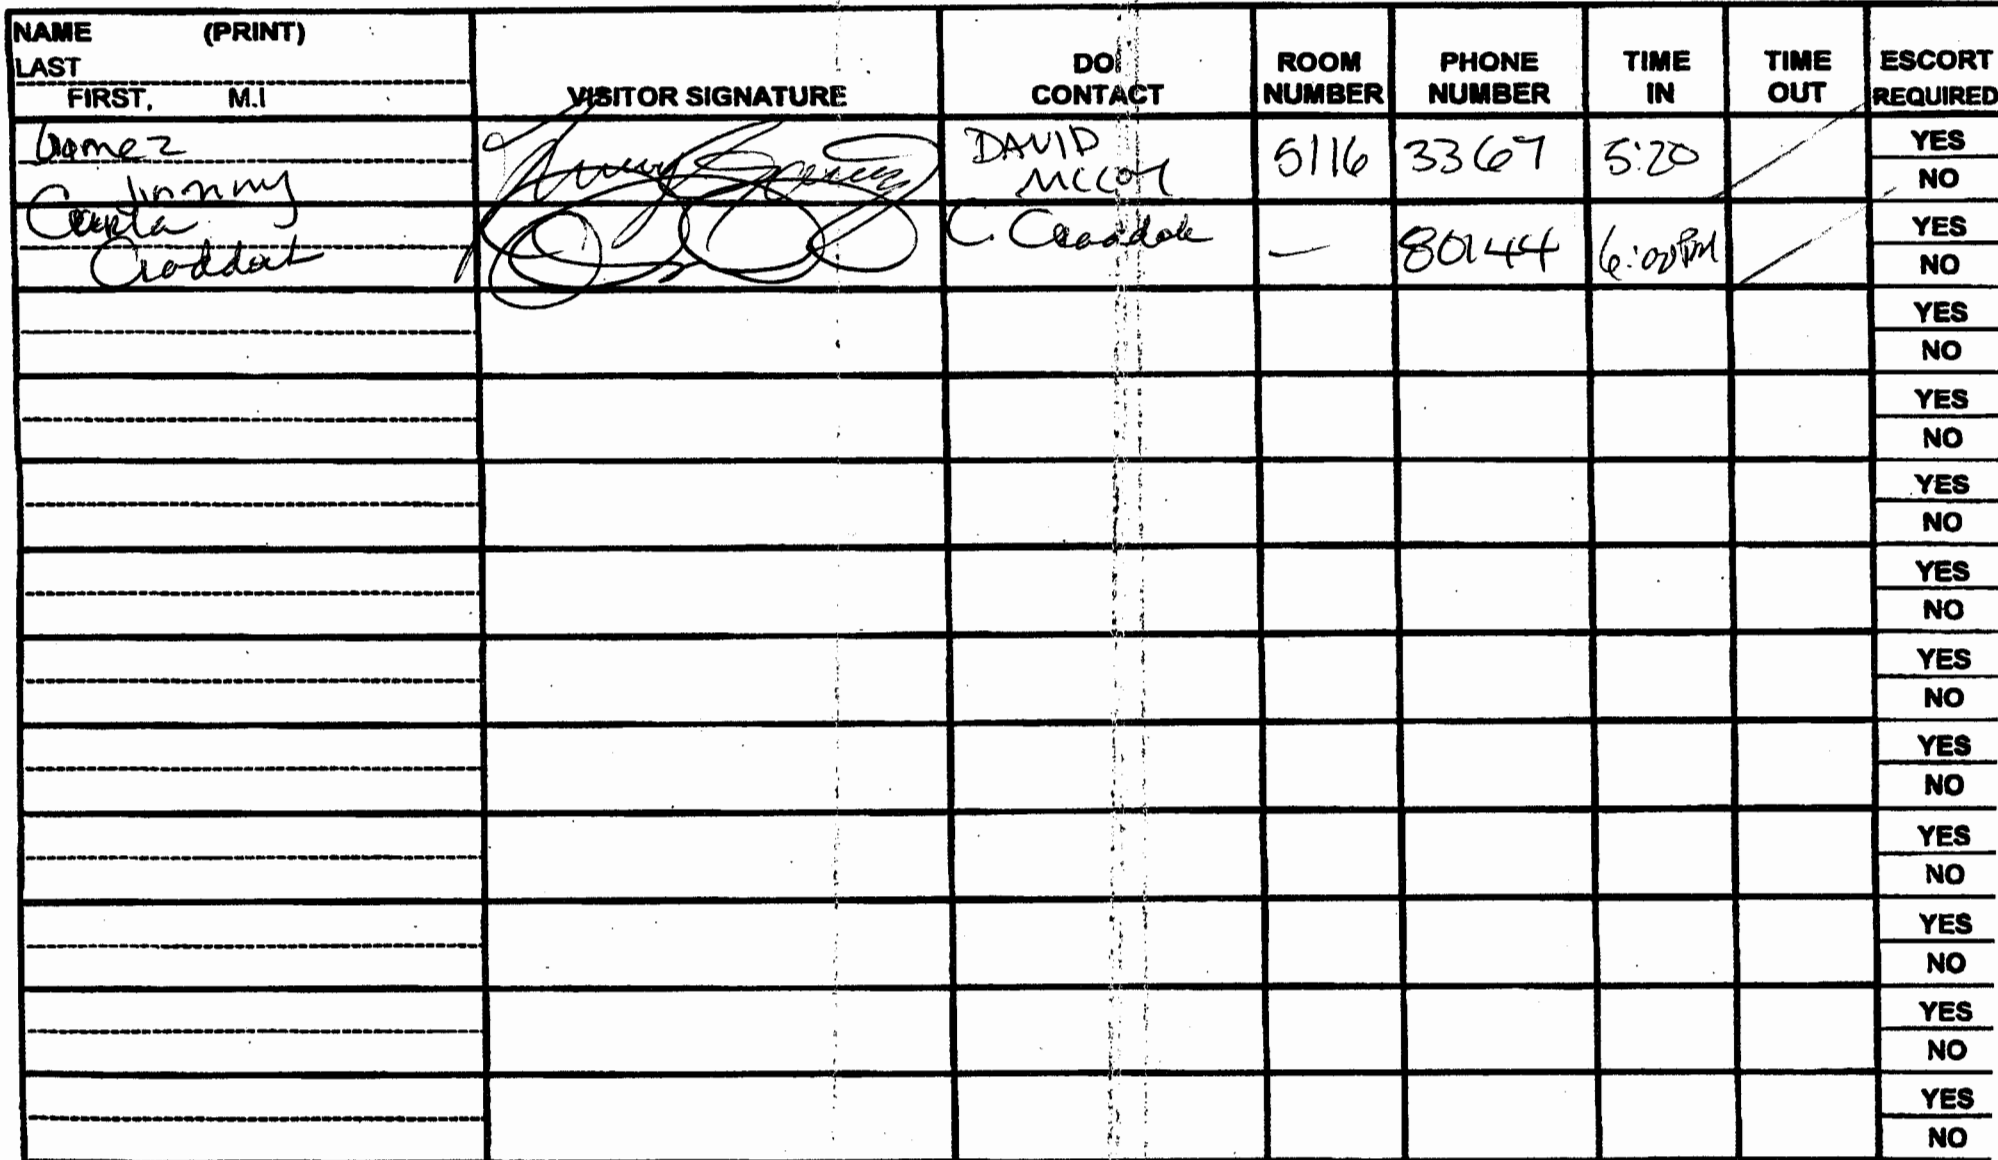 NAME (PRINT)
LAST
FIRST, M.I
VISITOR SIGNATURE
DOI CONTACT
ROOM NUMBER
PHONE NUMBER
TIME IN
TIME OUT
ESCORT REQUIRED
Gomez
Jimmy
DAVID
MCCOY
5116
3367
5:20
YES
NO
Carla
Craddock
C. Craddock
—
80144
6:00PM
YES
NO
YES
NO
YES
NO
YES
NO
YES
NO
YES
NO
YES
NO
YES
NO
YES
NO
YES
NO
YES
NO